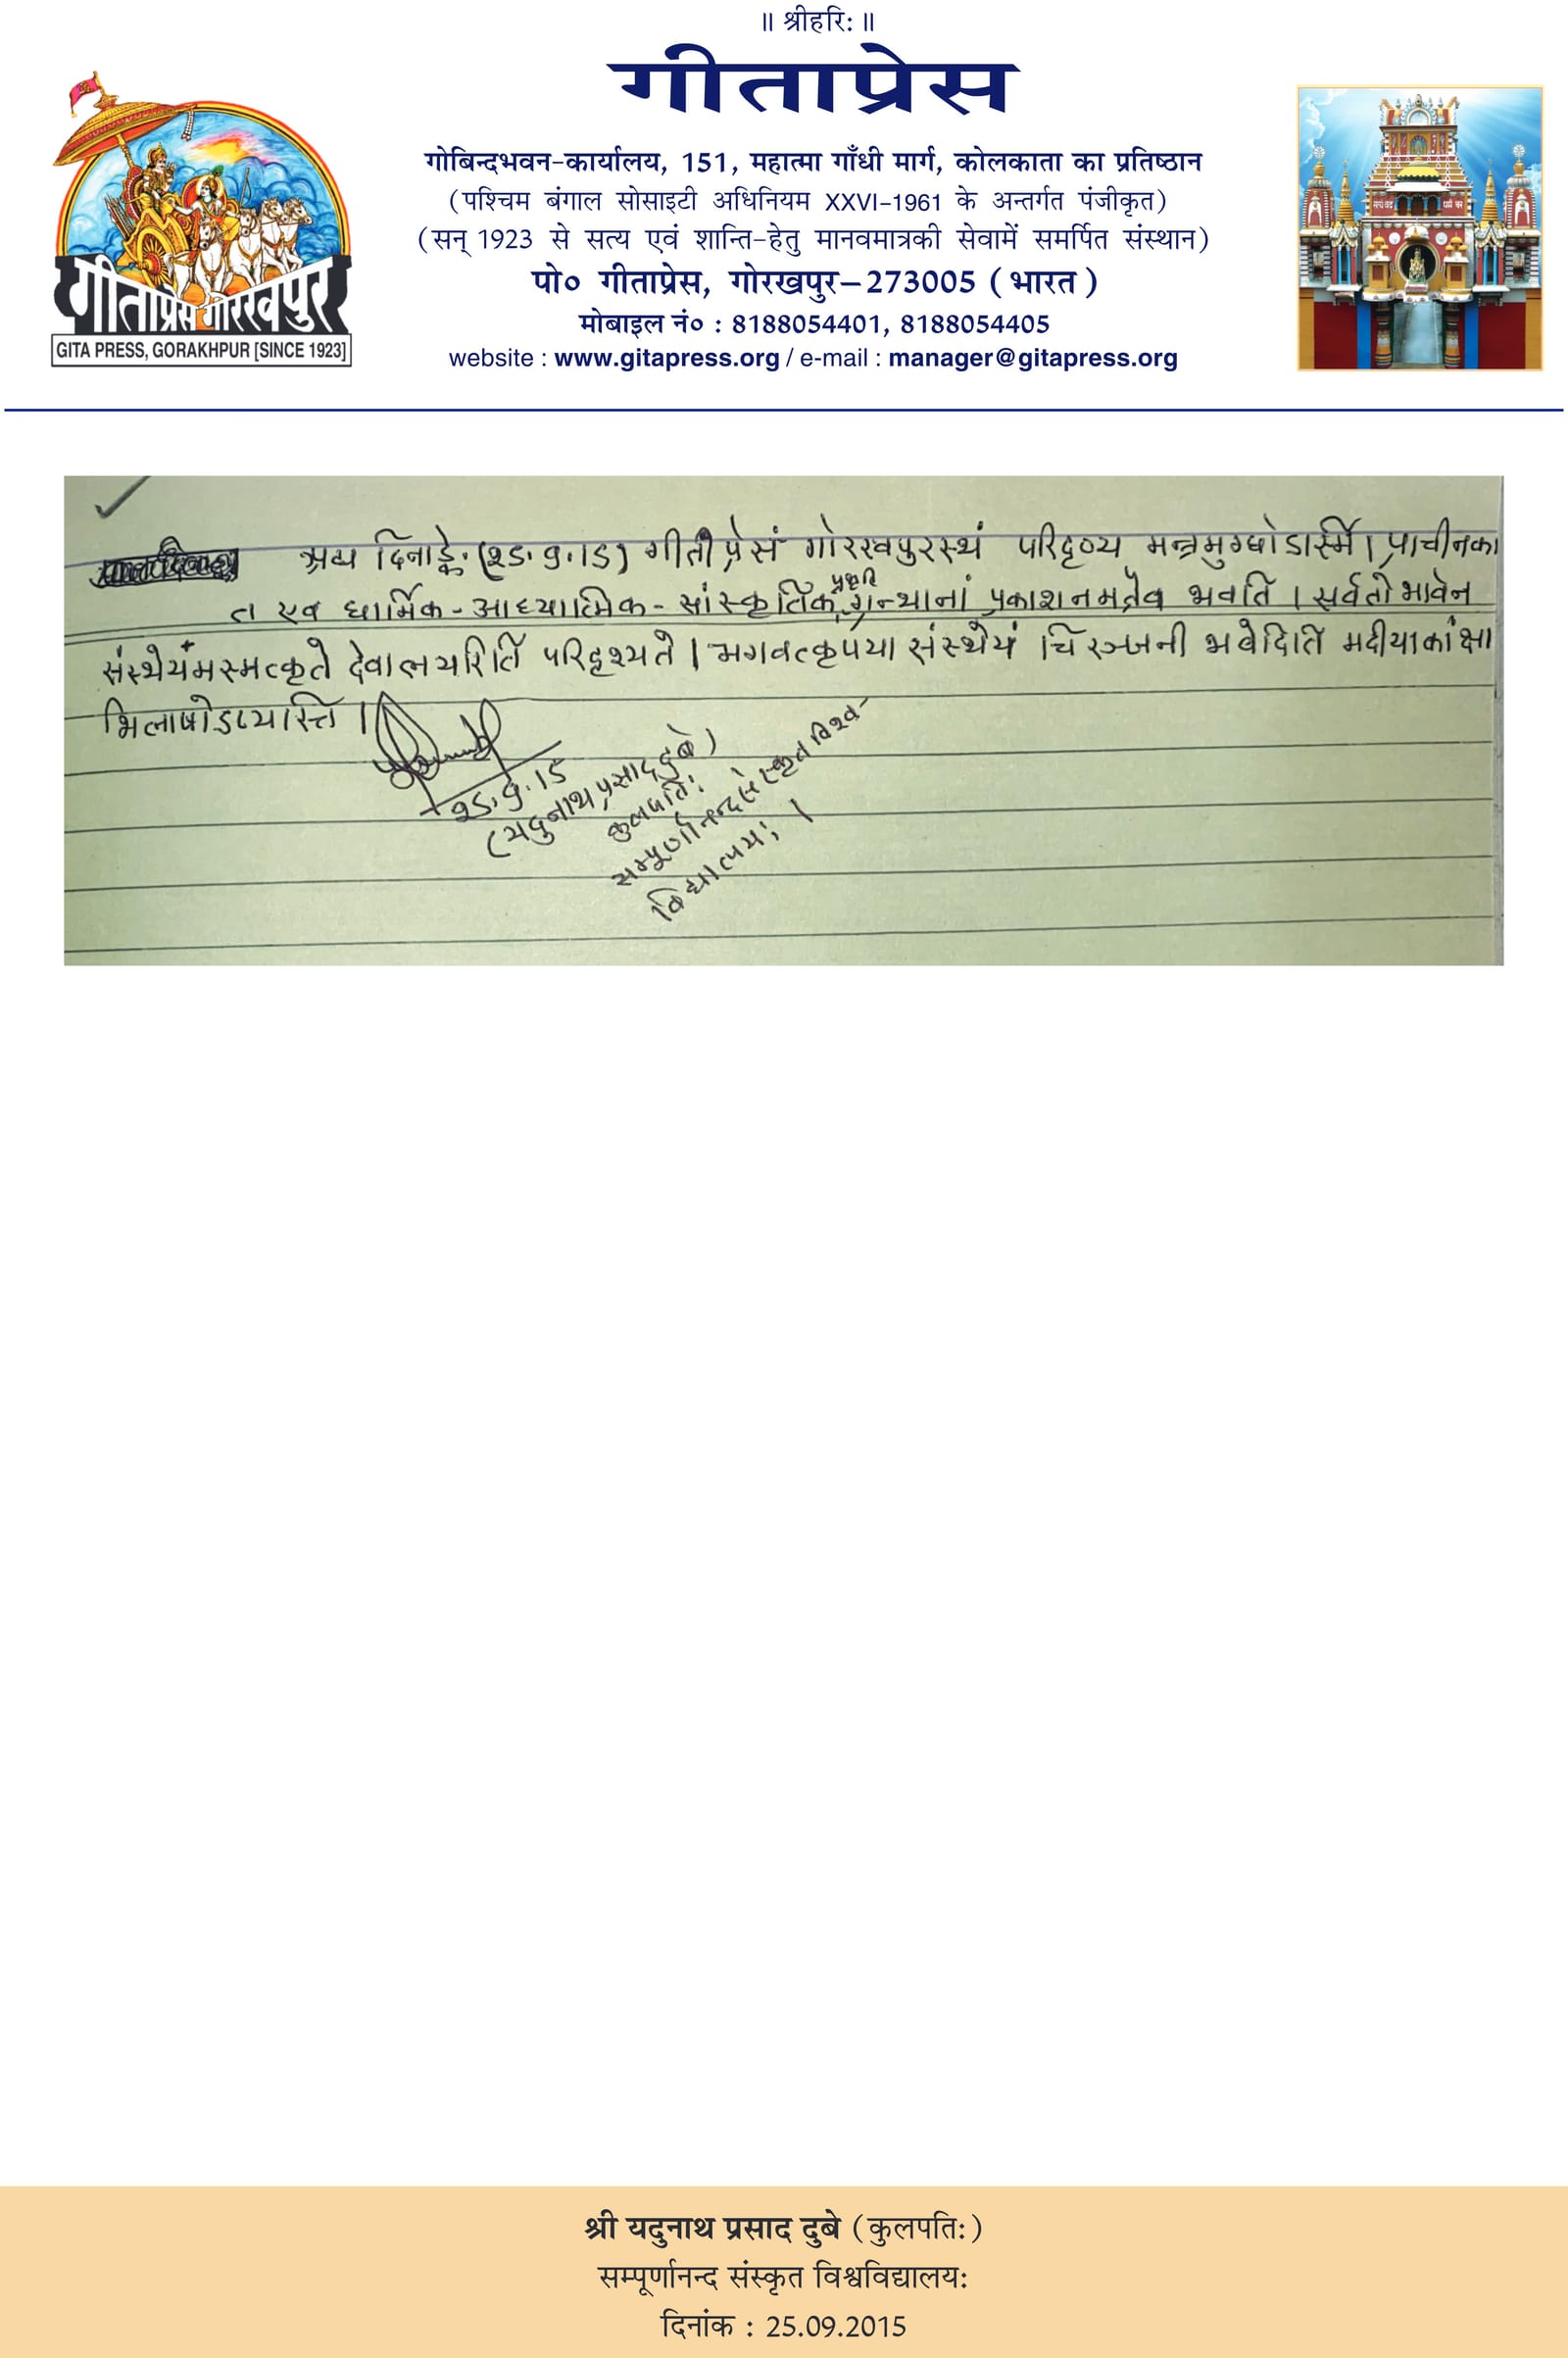 ॥ श्रीहरि: ॥
गीताप्रेस
गोबिन्दभवन-कार्यालय, 151, महात्मा गाँधी मार्ग, कोलकाता का प्रतिष्ठान
(पश्चिम बंगाल सोसाइटी अधिनियम XXVI-1961 के अन्तर्गत पंजीकृत)
(सन् 1923 से सत्य एवं शान्ति-हेतु मानवमात्रकी सेवामें समर्पित संस्थान)
पो० गीताप्रेस, गोरखपुर—273005 (भारत)
मोबाइल नं० : 8188054401, 8188054405
website : www.gitapress.org / e-mail : manager@gitapress.org
गीताप्रेस गोरखपुर
GITA PRESS, GORAKHPUR [SINCE 1923]
अद्य दिनाङ्के (२५.९.१५) गीता प्रेसं गोरखपुरस्थं परिदृश्य मन्त्रमुग्धोऽस्मि। प्राचीनका
त एव धार्मिक-आध्यात्मिक-सांस्कृतिक ग्रन्थानां प्रकाशनमत्रैव भवति। सर्वतोभावेन
संस्थेयंमस्मत्कृते देवालयरिति परिदृश्यते। भगवत्कृपया संस्थेयं चिरञ्जनी भवेदिति मदीयाकांक्षा
भिलाषोऽप्यस्ति।
२५.९.१५
(यदुनाथ प्रसाद दुबे)
कुलपतिः
सम्पूर्णानन्दसंस्कृत विश्व-
विद्यालयः।
श्री यदुनाथ प्रसाद दुबे (कुलपति:)
सम्पूर्णानन्द संस्कृत विश्वविद्यालय:
दिनांक : 25.09.2015